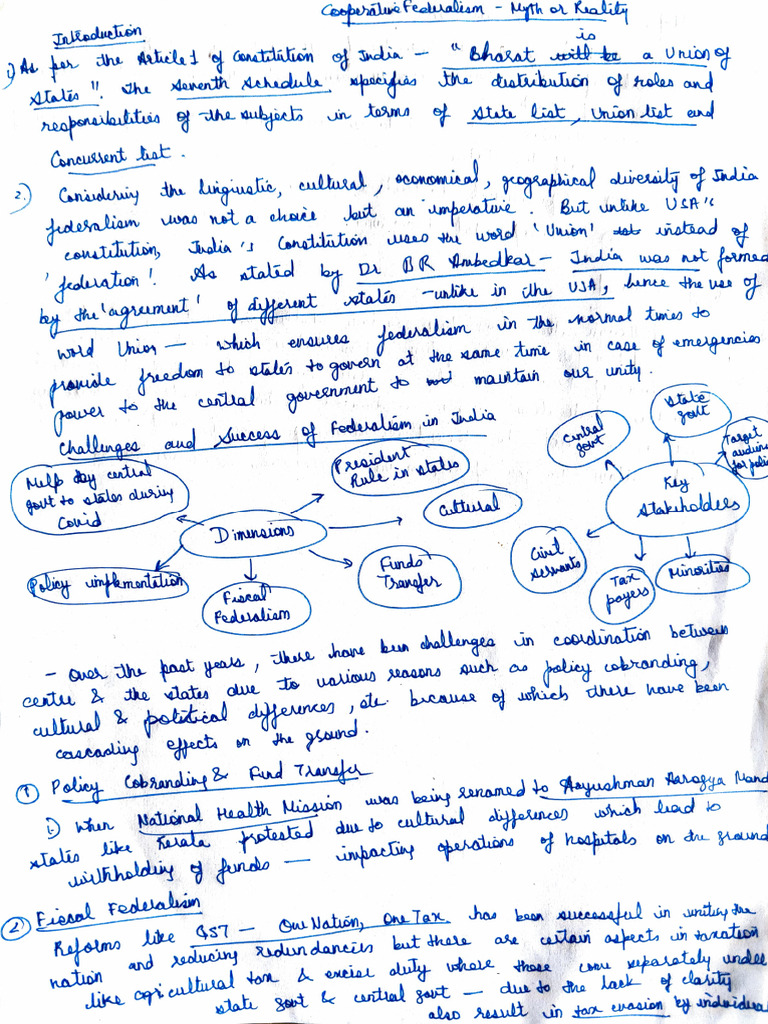 Cooperative Federalism - Myth or Reality
Introduction
1) As per the Article 1 of Constitution of India - "Bharat is a Union of
States". The Seventh Schedule specifies the distribution of roles and
responsibilities of the subjects in terms of State list, Union list and
Concurrent list.
2.) Considering the linguistic, cultural, economical, geographical diversity of India
federalism was not a choice but an imperative. But unlike USA's
constitution, India's Constitution uses the word 'Union' instead of
'federation'. As stated by Dr BR Ambedkar - India was not formed
by the 'agreement' of different states - unlike in the USA, hence the use of
word Union - which ensures federalism in the normal times to
provide freedom to states to govern at the same time in case of emergencies
power to the central government to maintain our unity.
Challenges and Success of Federalism in India
Help by central
govt to states during
Covid
President
Rule in states
Cultural
Dimensions
Policy implementation
Fiscal
Federalism
Funds
Transfer
Central
govt
State
govt
Target
for
Key
Stakeholders
Civil
servants
Tax
payers
Minorities
- Over the past years, there have been challenges in coordination between
centre & the states due to various reasons such as policy cobranding,
cultural & political differences, etc. because of which there have been
cascading effects on the ground.
① Policy Cobranding & Fund Transfer
1.) When National Health Mission was being renamed to Aayushman Aarogya Mand
states like Kerala protested due to cultural differences which lead to
withholding of funds - impacting operations of hospitals on the ground
② Fiscal Federalism
Reforms like GST - One Nation, One Tax has been successful in uniting the
nation and reducing redundancies but there are certain aspects in taxation
like agricultural tax & excise duty where those come separately under
state govt & central govt - due to the lack of clarity
also result in tax evasion by individual